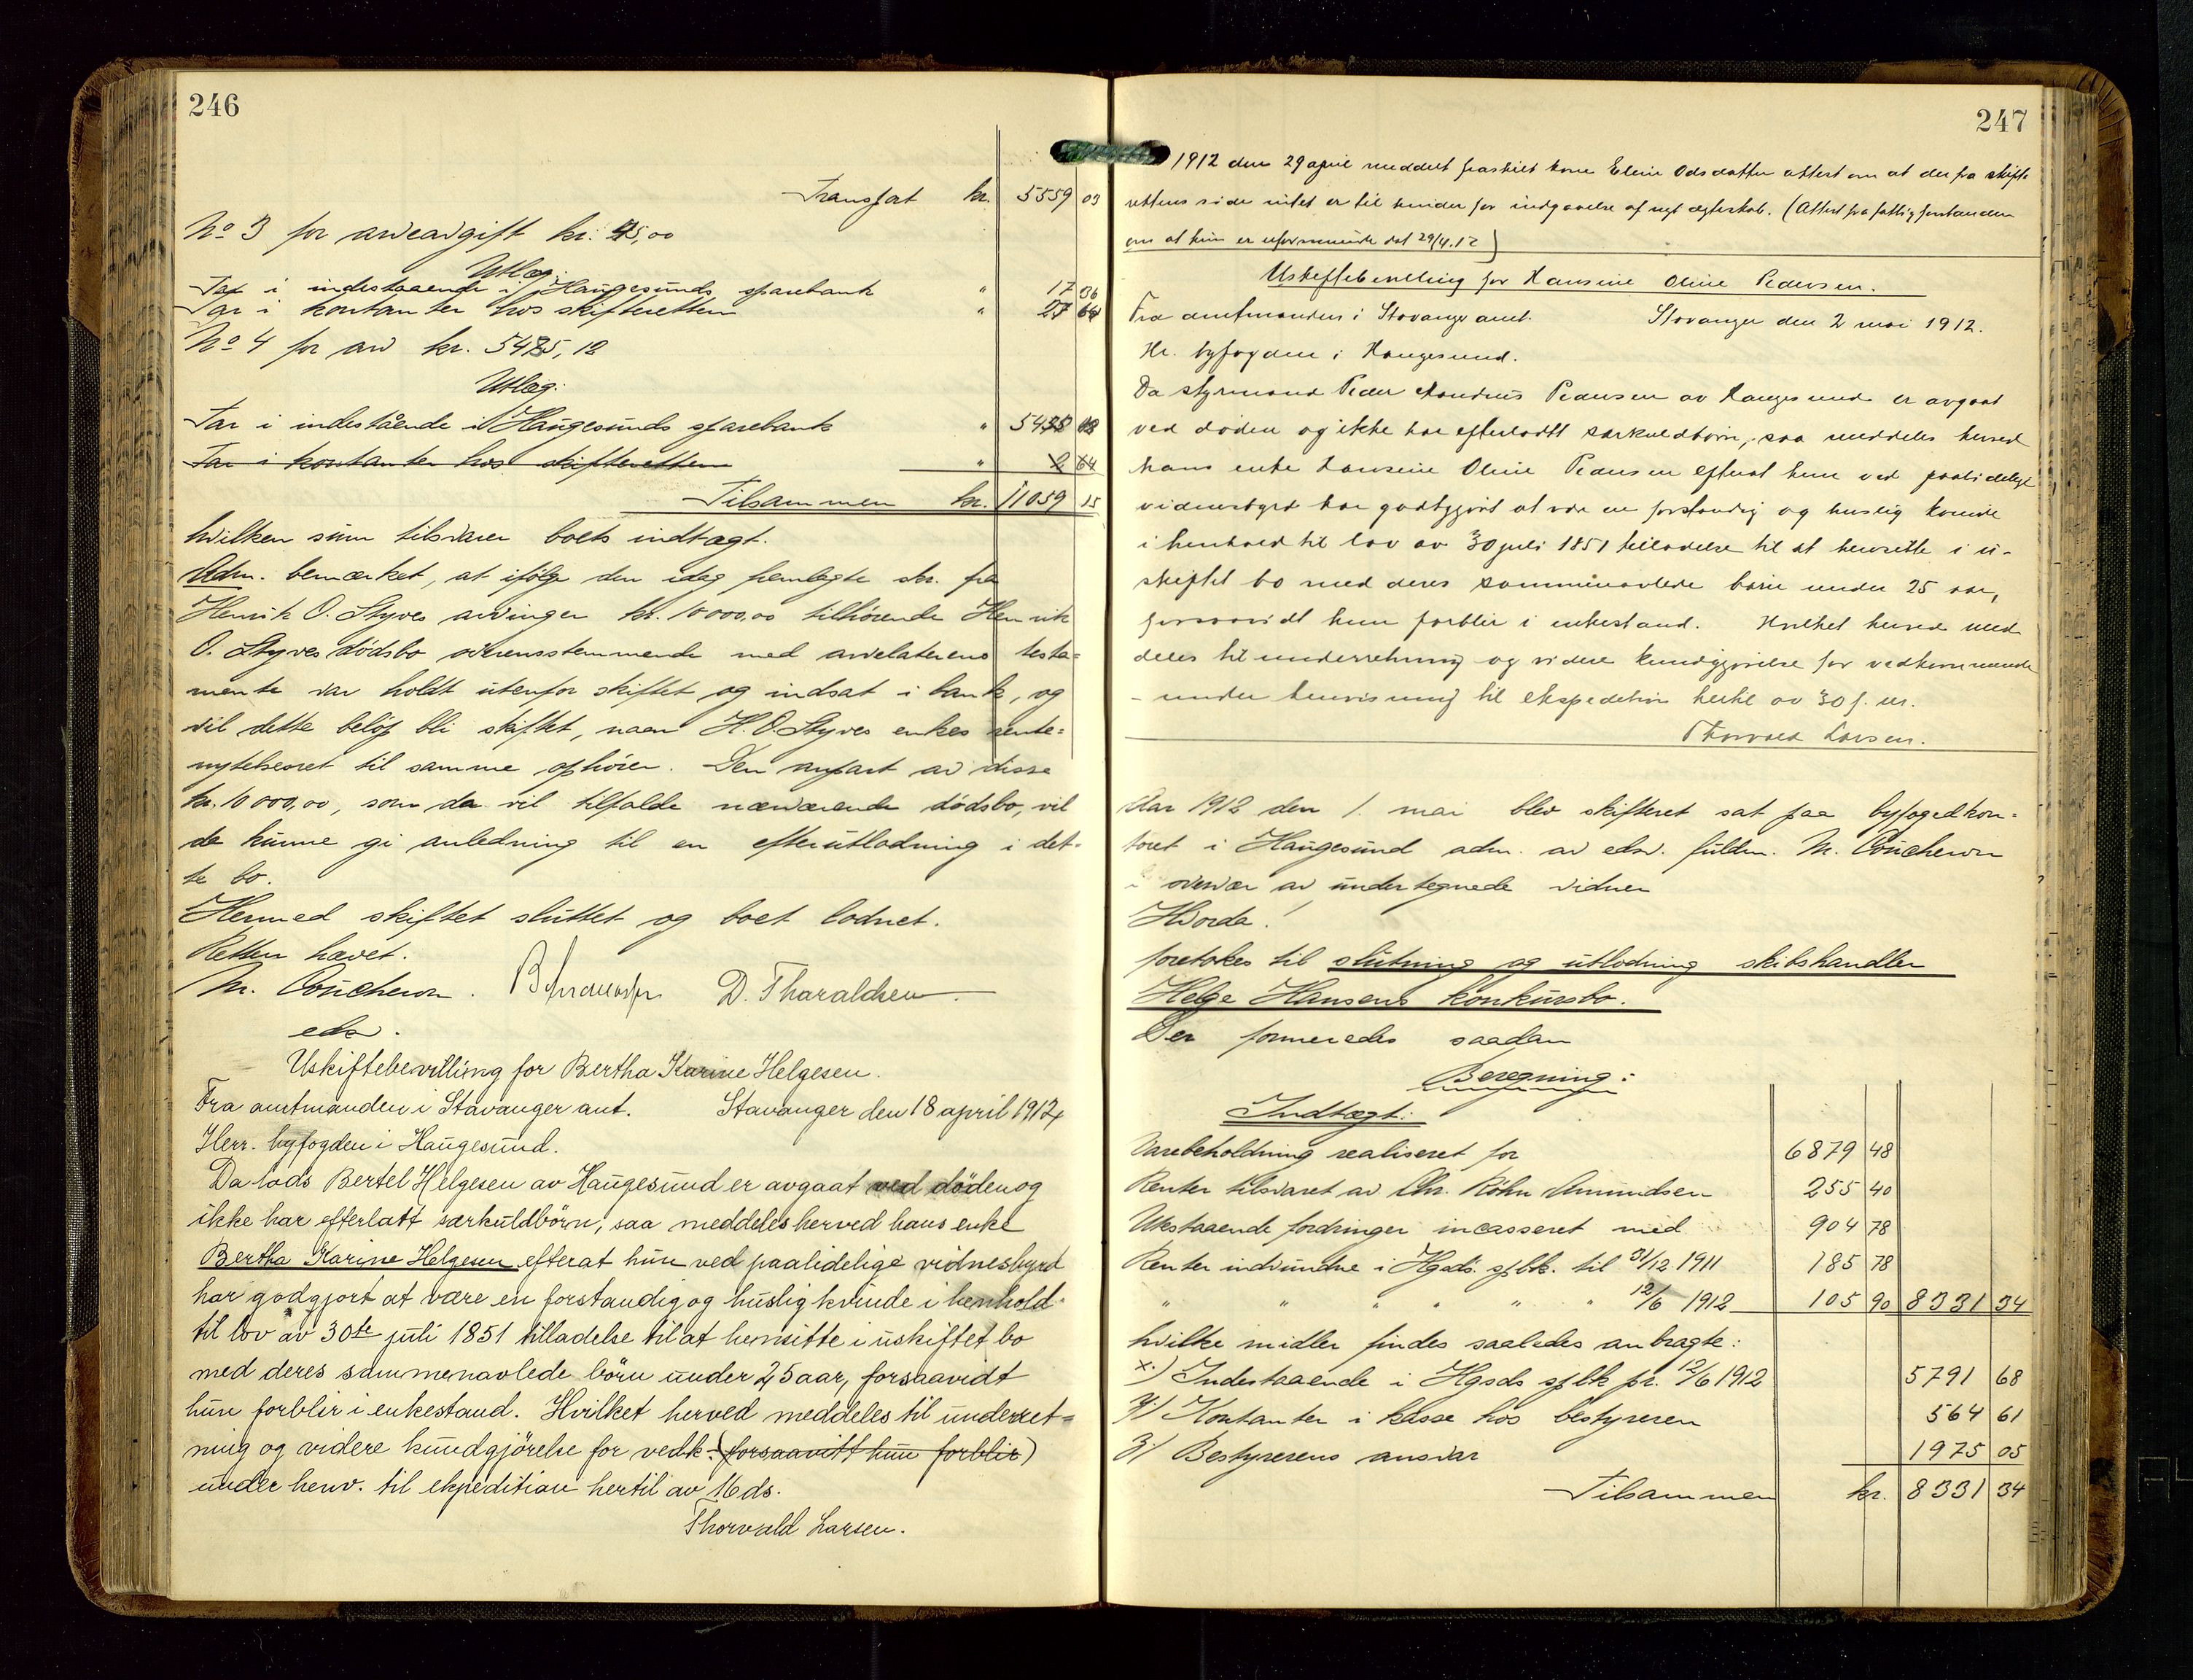 246
Transport kr. 5559 03
No 3 for arveavgift kr. 45,00
Utlæg:
Tar i indestaaende i Haugesunds sparebank " 17 36
Tar i kontanter hos skifteretten " 27 64
No 4 for arv kr. 5435,12
Utlæg:
Tar i indestående i Haugesunds sparebank " 5438 12
Tar i kontanter hos skifteretten " 2 64
Tilsammen kr. 11059 15
hvilken sum tilsvarer boets indtægt.
Adm. bemærket, at ifölge den idag fremlagte skr. fra
Henrik O. Styves arvinger kr. 10000,00 tilhörende Henrik
O. Styves dödsbo overensstemmende med arvelaterens testa=
mente var holdt utenfor skiftet og indsat i bank, og
vil dette belöp bli skiftet, naar H. O. Styves enkes rente=
nytelsesret til samme ophörer. Den anpart av disse
kr. 10000,00, som da vil tilfalde nærværende dödsbo, vil
da kunne gi anledning til en efterutlodning i det-
te bo.
Hermed skiftet sluttet og boet lodnet.
Retten hævet.
M. Coucheron. D. Tharaldsen
edsv.
Uskiftebevilling for Bertha Karine Helgesen.
Fra amtmanden i Stavanger amt. Stavanger den 18 april 1912,
Herr. byfogden i Haugesund.
Da lods Bertel Helgesen av Haugesund er avgaat ved döden og
ikke har efterlatt særkuldbörn, saa meddeles herved hans enke
Bertha Karine Helgesen efterat hun ved paalidelige vidnesbyrd
har godgjort at være en forstandig og huslig kvinde i henhold
til lov av 30te juli 1851 tilladelse til at hensitte i uskiftet bo
med deres sammenavlede börn under 25 aar, forsaavidt
hun forblir i enkestand. Hvilket herved meddeles til underret=
ning og videre kundgjörelse for vedk. (forsaavitt hun forblir)
under henv. til ekpedition hertil av 16 ds.
Thorvald Larsen.
247
1912 den 29 april meddelt fraskilt kone Eline Odsdatter attest om at der fra skifte
rettens side intet er til hinder for indgaaelse af nyt ægteskab. (Attest fra fattigforstanderen
om at hun er uformuende dat 29/4.12)
Uskiftebevilling for Hansine Oline Pedersen.
Fra amtmanden i Stavanger amt. Stavanger den 2 mai 1912.
Hr. byfogden i Haugesund.
Da styrmand Peder Pedersen av Haugesund er avgaat
ved döden og ikke har efterladt særkuldbörn, saa meddeles herved
hans enke Hansine Oline Pedersen efterat hun ved paalidelige
vidnesbyrd har godtgjort at være en forstandig og huslig kvinde
i henhold til lov av 30 juli 1851 tilladelse til at hensitte i u-
skiftet bo med deres sammenavlede börn under 25 aar,
forsaavidt hun forblir i enkestand. Hvilket herved med
deles til underretning og videre kundgjörelse for vedkommende
- under henvisning til ekspedition hertil av 30 f. m.
Thorvald Larsen.
Aar 1912 den 1. mai blev skifteret sat paa byfogedkon-
toret i Haugesund adm. av edsv. fuldm. M. Coucheron
i overvær av undertegnede vidner
Hvorda!
foretokes til slutning og utlodning skibshandler
Helge Hansens konkursbo.
Der formeredes saadan
Beregning:
Indtægt:
Varebeholdning realiseret for 6879 48
Renter tilsvaret av Chr. Röhn Amundsen 255 40
Utestaaende fordringer incasseret med 904 78
Renter indvundne i Hgsds. spbk. til 31/12 1911 185 78
" " " " " " 12/6 1912 105 90 8331 34
hvilke midler findes saaledes anbragte:
x.) Indestaaende i Hgsds spbk pr. 12/6 1912 5791 68
y.) Kontanter i kasse hos bestyreren 564 61
z.) Bestyrerens ansvar 1975 05
Tilsammen kr. 8331 34